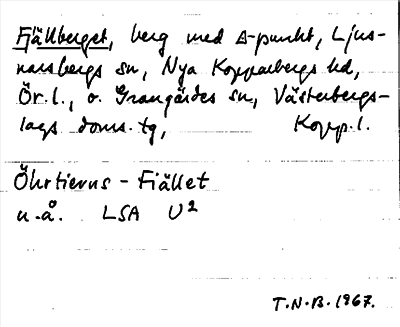 Fjällberget, berg med △-punkt, Ljus-
narsbergs sn, Nya Kopparbergs hd,
Ör.l., o. Grangärdes sn, Västerbergs-
lags doms. tg, Kopp.l.
Öhrtierns - Fiället
u.å. LSA U²
T.N.B. 1967.